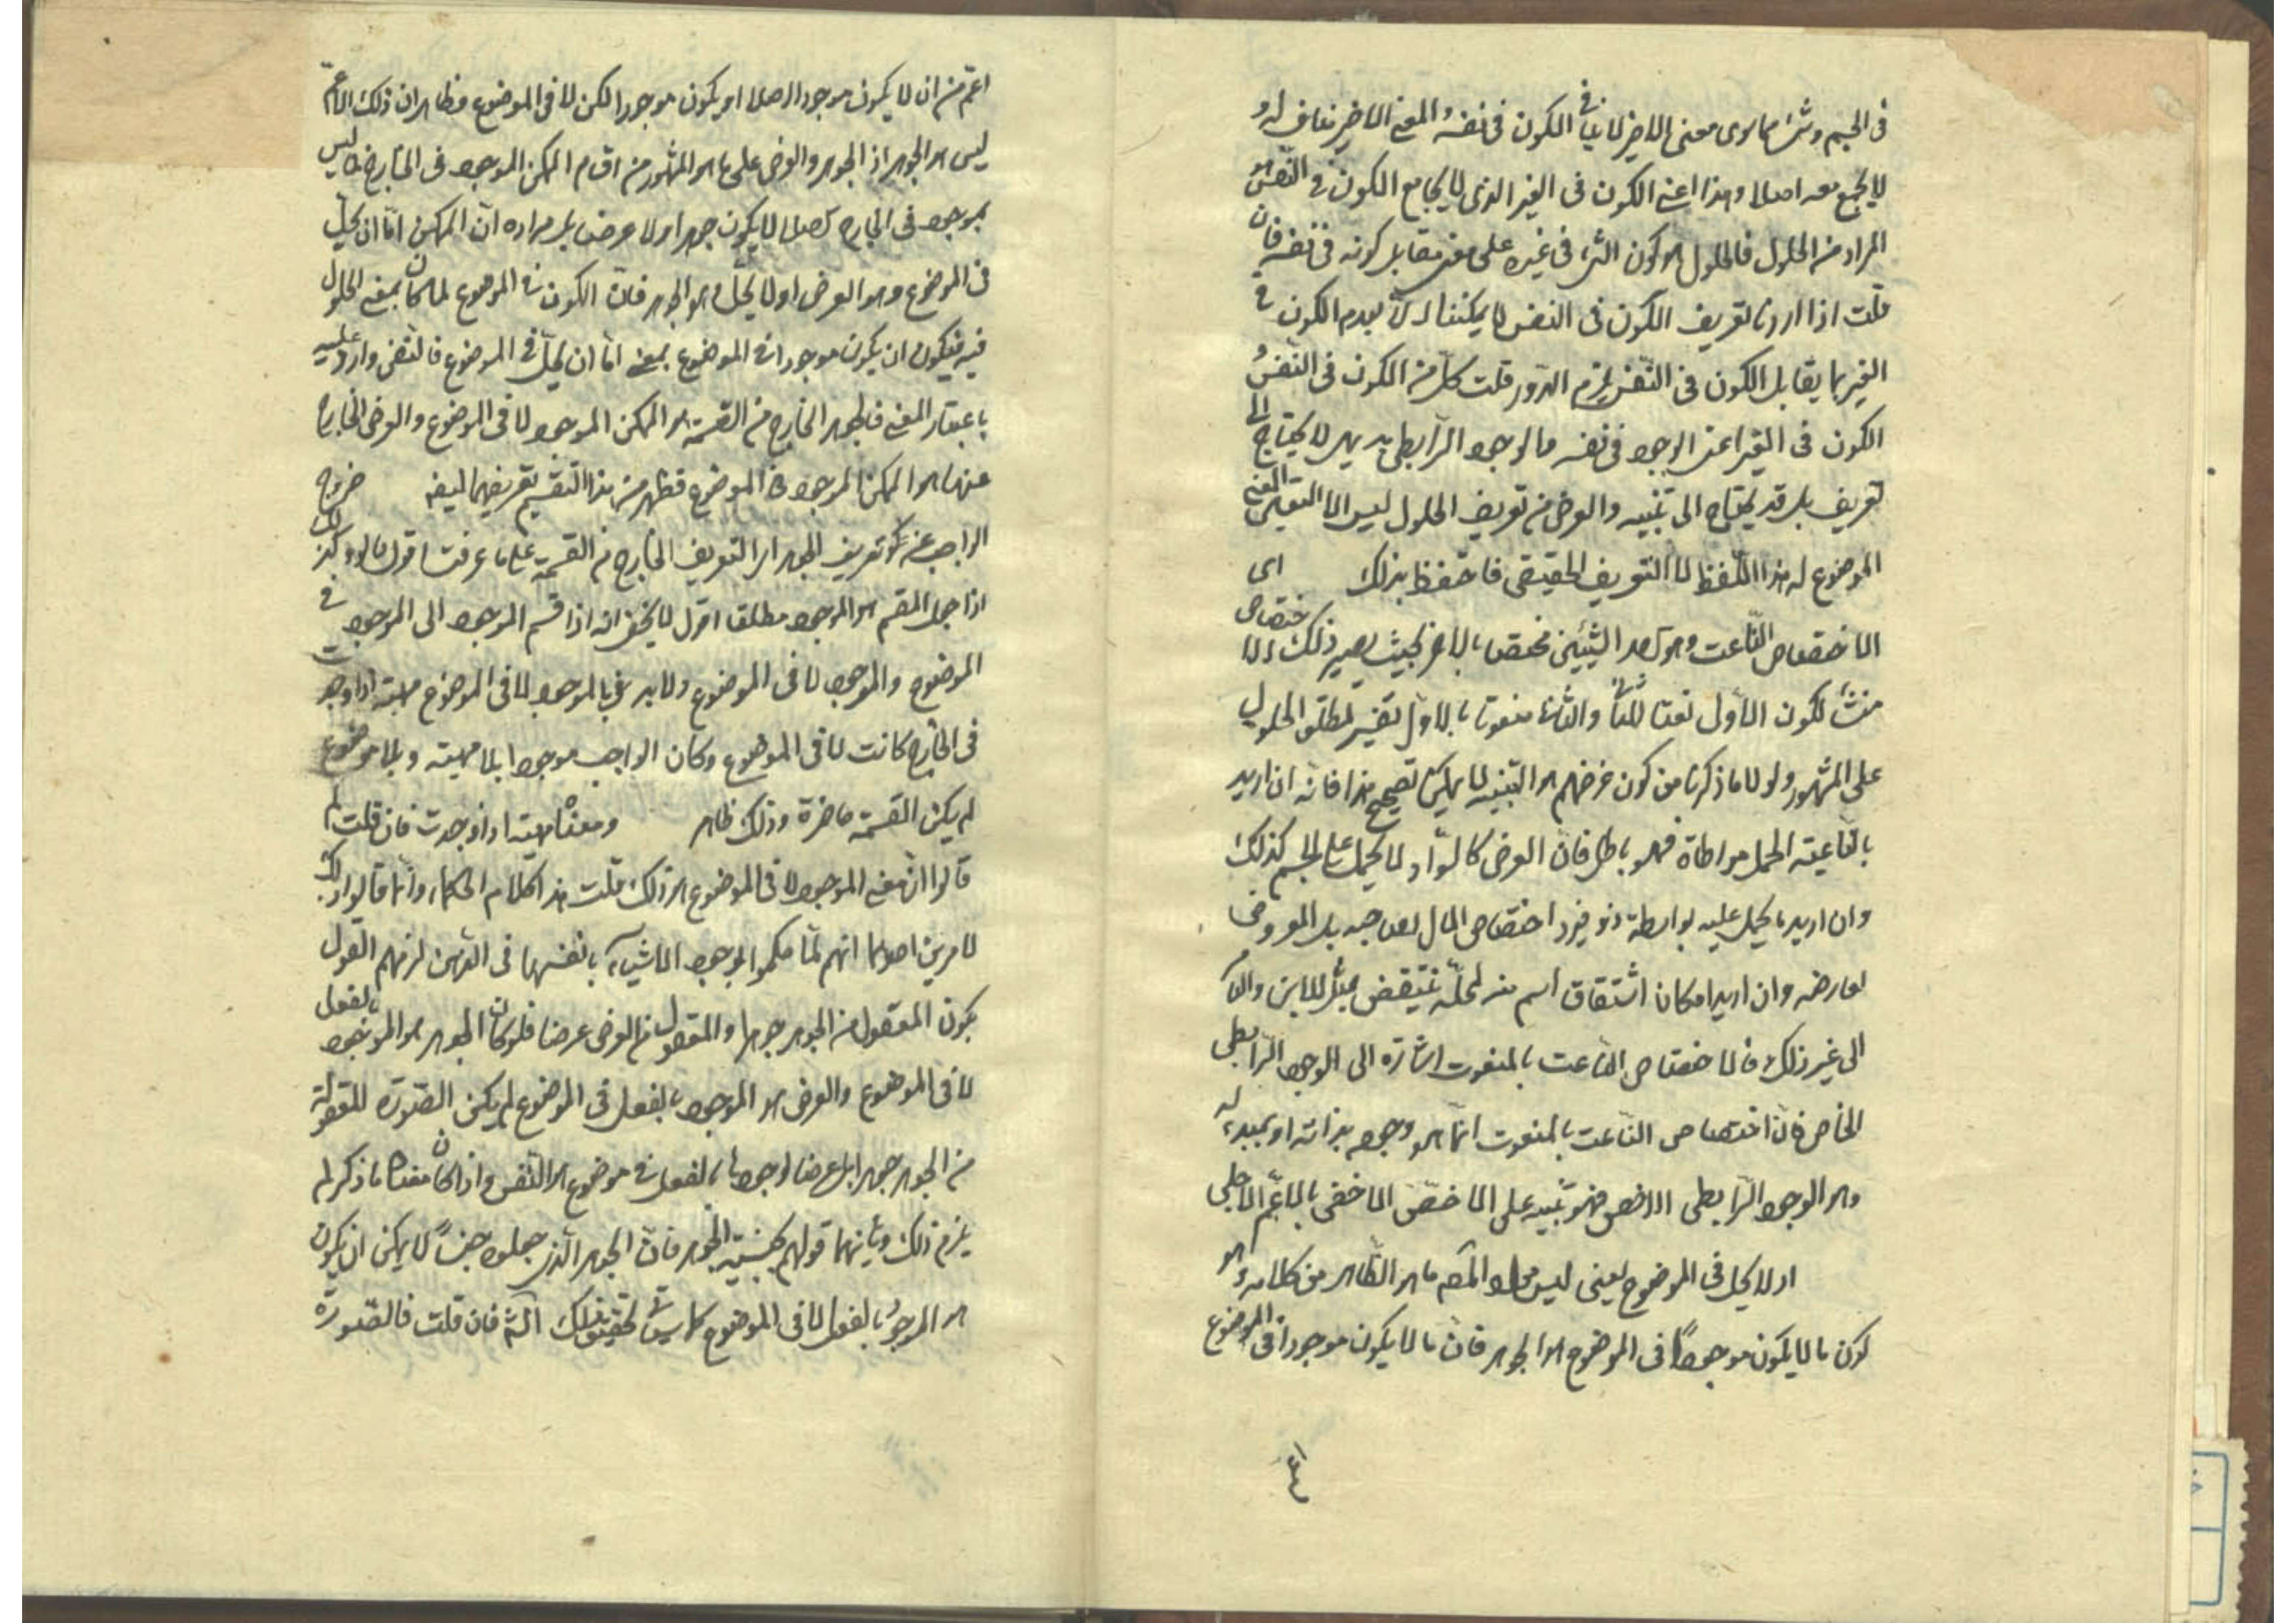 في الجسم وشتان ما بين معنى الاخير لا ينافي الكون في نفسه والمعنى الاخير ينافي له و
لا يجتمع معه اصلا وهذا اعني الكون في الغير الذي لا يجامع الكون في النفس هو
المراد من الحلول فالحلول هو كون الشئ في غيره على معنى يقابل كونه في نفسه فان
قلت اذا اردنا تعريف الكون في النفس لا يمكننا الا بعدم الكون في
الغير بما يقابل الكون في النفس يلزم الدور قلت كل من الكون في النفس و
الكون في الغير اعني الوجود في نفسه والوجود الرابطي بديهي لا يحتاج الى
تعريف بل قد يحتاج الى تنبيه والغرض من تعريف الحلول ليس الا التعيين المعنى
الموضوع له هذا اللفظ لا التعريف الحقيقي فاحتفظ بذلك اي
الاختصاص الناعت وهو احد الشيئين مختصا بالاخر بحيث يصير ذلك الاختصاص
منشأ لكون الاول نعتا للثاني والثاني منعوتا بالاول تفسير لمطلق الحلول
على المشهور ولولا ما ذكرنا من كون غرضهم هو التنبيه لا يمكن تصحيح هذا فانه ان اريد
بالناعتية الحمل مواطاة فهو باطل فان العرض كالسواد لا يحمل على الجسم كذلك
وان اريد ما يحمل عليه بواسطة ذو فيرد اختصاص المال لصاحبه بل المعروض
لعارضه وان اريد امكان اشتقاق اسم منه لمحله ينتقض بمثل اللابن والتامر
الى غير ذلك فالاختصاص الناعت بالمنعوت اشارة الى الوجود الرابطي
الخاص فان اختصاص الناعت بالمنعوت انما هو وجوده بذاته او بمبدئه له
وهو الوجود الرابطي الاخص فهو تنبيه على الاخص الاخفى بالاعم الاجلى
او لا يحل في الموضوع يعني ليس مراد المص ما هو الظاهر من كلامه وهو
كون ما لا يكون موجودا في الموضوع هو الجوهر فان ما لا يكون موجودا في الموضوع
اعم من ان لا يكون موجودا اصلا او يكون موجودا لكن لا في الموضوع وظاهر ان ذلك الاعم
ليس هو الجوهر اذ الجوهر والعرض على ما هو المشهور من اقسام الممكن الموجود في الخارج فما ليس
بموجود في الخارج اصلا لا يكون جوهرا ولا عرضا بل مراده ان الممكن اما ان يحل
في الموضوع وهو العرض او لا يحل وهو الجوهر فان الكون في الموضوع لما كان بمعنى الحلول
فيه فيكون ان يكون موجودا في الموضوع بمعنى اما ان يحل في الموضوع فالنفي وارد عليه
باعتبار المعنى فالجوهر الخارج من القسمة هو الممكن الموجود لا في الموضوع والعرض الخارج
عنها هو الممكن الموجود في الموضوع فظهر من هذا التقسيم تعريفهما ليفه خروج
الواجب عن تعريف الجوهر اي التعريف الخارج من القسمة على ما عرفت اقول ولو كذلك
اذا جعل المقسم هو الموجود مطلقا اقول لا يخفى انه اذا قسم الموجود الى الموجود في
الموضوع والموجود لا في الموضوع ولا يراد بالموجود لا في الموضوع مهية اذا وجدت
في الخارج كانت لا في الموضوع وكان الواجب موجودا بلا مهية وبلا موضوع
لم يكن القسمة حاصرة وذلك ظاهر ومعناه مهية اذا وجدت فان قلت لم
قالوا ان معنى الموجود لا في الموضوع هو ذلك قلت هذا كلام الحكماء وانما قالوا ذلك
لامرين احدهما انهم لما حكموا بوجود الاشياء بانفسها في الذهن لزمهم القول
بكون المعقول من الجوهر جوهرا والمعقول من العرض عرضا فلو كان الجوهر هو الموجود بالفعل
لا في الموضوع والعرض هو الموجود بالفعل في الموضوع لم يكن الصورة المعقولة
من الجوهر جوهرا بل عرضا لوجودها بالفعل في موضوع هو النفس واذا كان معناه ما ذكر لم
يلزم ذلك وثانيهما قولهم بجنسية الجوهر فان الجوهر الذي جعلوه جنسا لا يمكن ان يكون
هو الموجود بالفعل لا في الموضوع كما سيأتي تحقيق ذلك انشاء فان قلت فالصورة